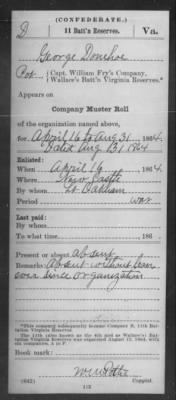 (CONFEDERATE.)
D 11 Batt'n Reserves. Va.
George Donehoe
Pvt., Capt. William Fry's Company,
Wallace's Batt'n Virginia Reserves.*
Appears on
Company Muster Roll
of the organization named above,
for April 16 to Aug 31, 1864.
Dated Aug 31 1864
Enlisted:
When April 16, 1864.
Where New Castle
By whom Lt
Period war
Last paid:
By whom
To what time , 186
Present or absent Absent
Remarks: Absent without leave
ever since organization
*This company subsequently became Company D, 11th Battalion Virginia Reserves.
The 11th (also known as the 4th and as Wallace's) Battalion Virginia Reserves was organized August 13, 1864, with six companies, A to F.
Book mark:
(642) Copyist.